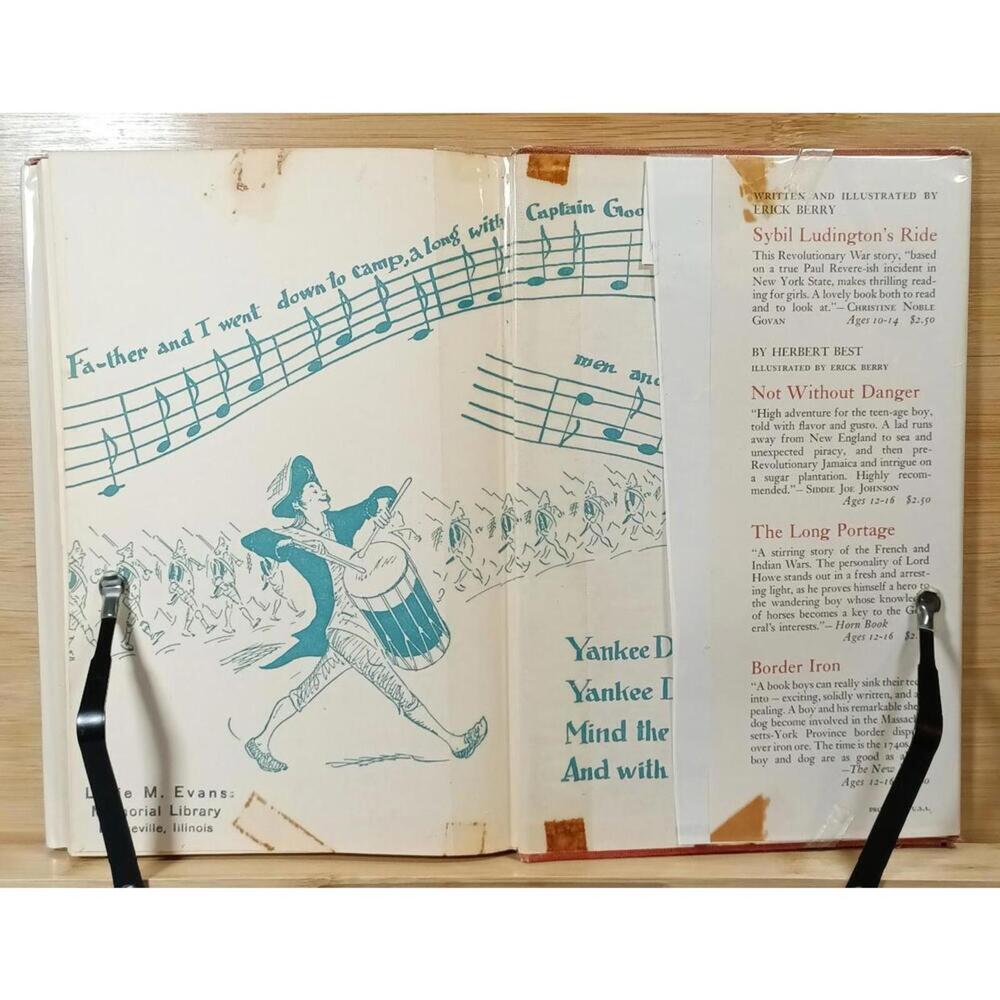 Fa-ther and I went down to camp, a long with Captain Goo
men and
Yankee D
Yankee D
Mind the
And with
M. Evans
Library
Illinois
WRITTEN AND ILLUSTRATED BY
ERICK BERRY
Sybil Ludington's Ride
This Revolutionary War story, "based
on a true Paul Revere-ish incident in
New York State, makes thrilling read-
ing for girls. A lovely book both to read
and to look at."—CHRISTINE NOBLE
GOVAN Ages 10-14 $2.50
BY HERBERT BEST
ILLUSTRATED BY ERICK BERRY
Not Without Danger
"High adventure for the teen-age boy,
told with flavor and gusto. A lad runs
away from New England to sea and
unexpected piracy, and then pre-
Revolutionary Jamaica and intrigue on
a sugar plantation. Highly recom-
mended."—SIDDIE JOE JOHNSON
Ages 12-16 $2.50
The Long Portage
"A stirring story of the French and
Indian Wars. The personality of Lord
Howe stands out in a fresh and arrest-
ing light, as he proves himself a hero to
the wandering boy whose knowle
of horses becomes a key to the G
eral's interests."—Horn Book
Ages 12-16 $2.
Border Iron
"A book boys can really sink their tee
into—exciting, solidly written, and a
pealing. A boy and his remarkable she
dog become involved in the Massac
setts-York Province border disp
over iron ore. The time is the 1740s,
boy and dog are as good as a
—The New
Ages 12-16
U.S.A.